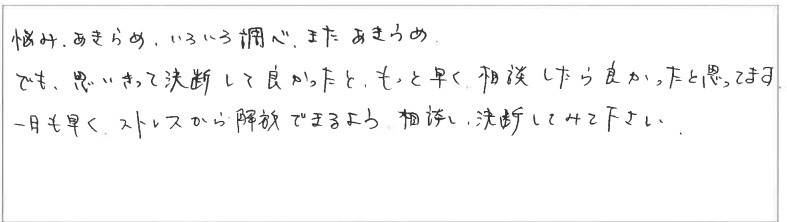 悩み、あきらめ、いろいろ調べ、またあきらめ
でも、思いきって決断して良かったと、もっと早く相談したら良かったと思ってます
一日も早く、ストレスから解放できるよう、相談し、決断してみて下さい、